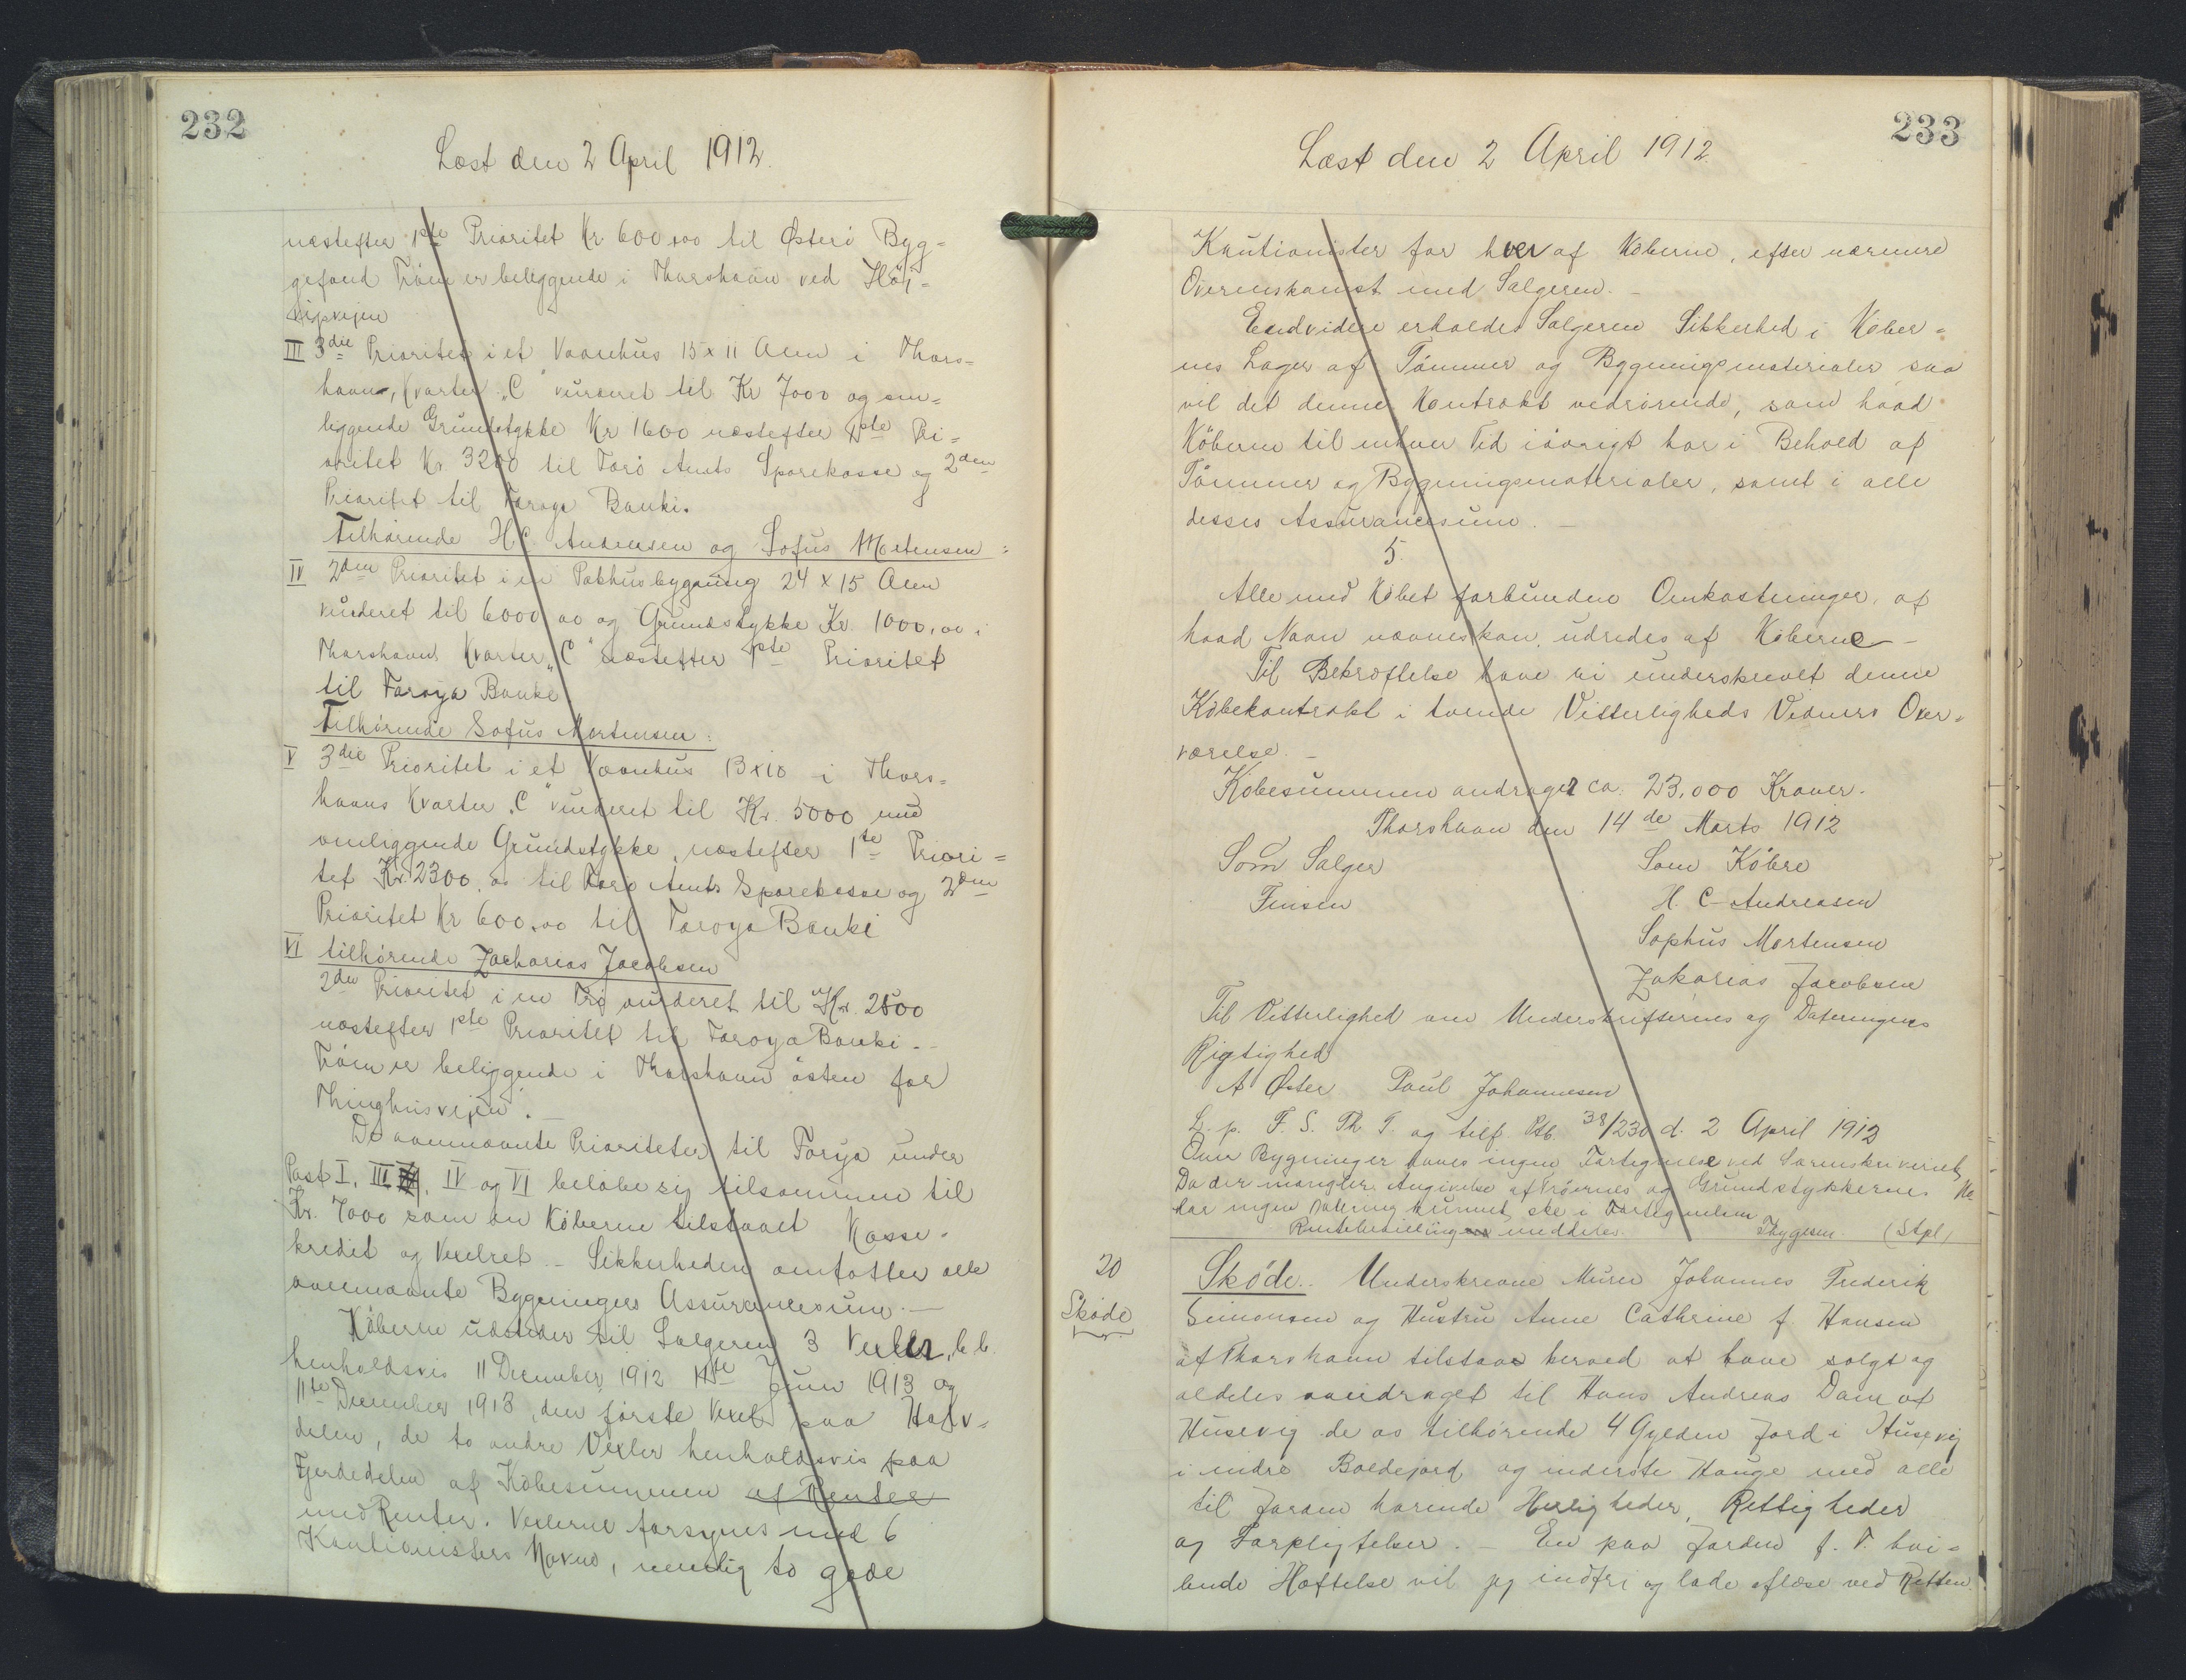 232
Læst den 2 April 1912.
næstefter 1ste Prioritet Kr 600,00 til Østerø Byg=
gefond Trøen er beliggende i Thorshavn ved Höj=
vigsvejen
III 3die Prioritet i et Vaanhus 15 x 11 Alen i Thors=
havns, Kvarter "C" vurderet til Kr 7000 og om=
liggende Grundstykke Kr 1600 næstefter 1ste Pri=
oritet Kr. 3200 til Færø Amts Sparekasse og 2den
Prioritet til Føroya Banki.
Tilhørende H C Andreasen og Sofus Mortensen:
IV 2den Prioritet i en Pakhusbygning 24 x 15 Alen
vurderet til 6000 00 og Grundstykke Kr. 1000,00 i
Thorshavns Kvarter "C" næstefter 1ste Prioritet
til Føroya Banke
Tilhørende Sofus Mortensen:
V 3die Prioritet i et Vaanhus 13 x 10 i Thors=
havns Kvarter "C" vurderet til Kr. 5000 med
omliggende Grundstykke, næstefter 1ste Priori=
tet Kr. 2300,00 til Færø Amts Sparekasse og 2den
Prioritet Kr 600,00 til Føroya Banki
VI tilhørende Zacharias Jacobsen
2den Prioritet i en Trø vurderet til Kr. 2500
næstefter 1ste Prioritet til Føroya Banki.-
Trøen er beliggende i Thorshavn østen for
Thinghusvejen.-
De ovennævnte Prioriteter til Førya under
Post I, III, IV og VI beløbe sig tilsammen til
Kr. 7000 som en Køberne tilstaaet Kasse-
kredit og Vexelret.- Sikkerheden omfatter alle
ovennævnte Bygningers Assurancesum.-
Køberne udsteder til Sælgeren 3 Vexler, b.b.
henholdsvis 11 December 1912 11te Juni 1913 og
11te December 1913, den første Vexel paa Halv=
delen, de to andre Vexler henholdsvis paa
Fjerdedelen af Købesummen af Renter
med Renter. Vexlerne forsynes med 6
Kautionisters Navne, nemlig to gode
233
Læst den 2 April 1912.
Kautionister for hver af Køberne, efter nærmere
Overenskomst med Sælgeren.-
Endvidere erholder Sælgeren Sikkerhed i Køber=
nes Lager af Tømmer og Bygningsmaterialer saa
vil det denne Kontrakt vedrørende, som hvad
Köberne til enhver Tid iøvrigt har i Behold af
Tømmer og Bygningsmaterialer, samt i alle
disses Assurancesum.-
5.
Alle med Købet forbundne Omkostninger, af
hvad Navn nævnes kan, udredes af Køberne-
Til Bekræftelse have vi underskrevet denne
Købekontrakt i tvende Vitterligheds Vidners Over=
værelse.-
Købesummen andrager ca. 23.000 Kroner.
Thorshavn den 14de Marts 1912
Som Sælger Som Købre
Finsen H. C Andreasen
Sophus Mortensen
Zakarias Jacobsen
Til Vitterlighed om Underskrifternes og Dateringens
Rigtighed
A Øster Poul Johannesen
L. p. F. S. Th. T. og tilf. Ptb. 38/230 d. 2 April 1912
Over Bygninger haves ingen Fortegnelse ved Sorenskriveriet,
Da der mangler Angivelse af Trøernes og Grundstykkernes No
har ingen Notering kunnet ske i Fortegnelsen
Rentebevilling meddeles. Thygesen (Stpl)
20
Skøde
Skøde. Underskrevne Murer Johannes Frederik
Simonsen og Hustru Anne Cathrine f. Hansen
af Thorshavn tilstaar herved at have solgt og
aldeles overdraget til Hans Andreas Dam af
Husevig de os tilhørende 4 Gylden Jord i Husevig
i indre Bøledejord og inderste Hauge med alle
til Jorden hørende Herligheder, Rettigheder
og Forpligtelser.- En paa Jorden f. T. hvi=
lende Hæftelse vil jeg indfri og lade aflæse ved Retten